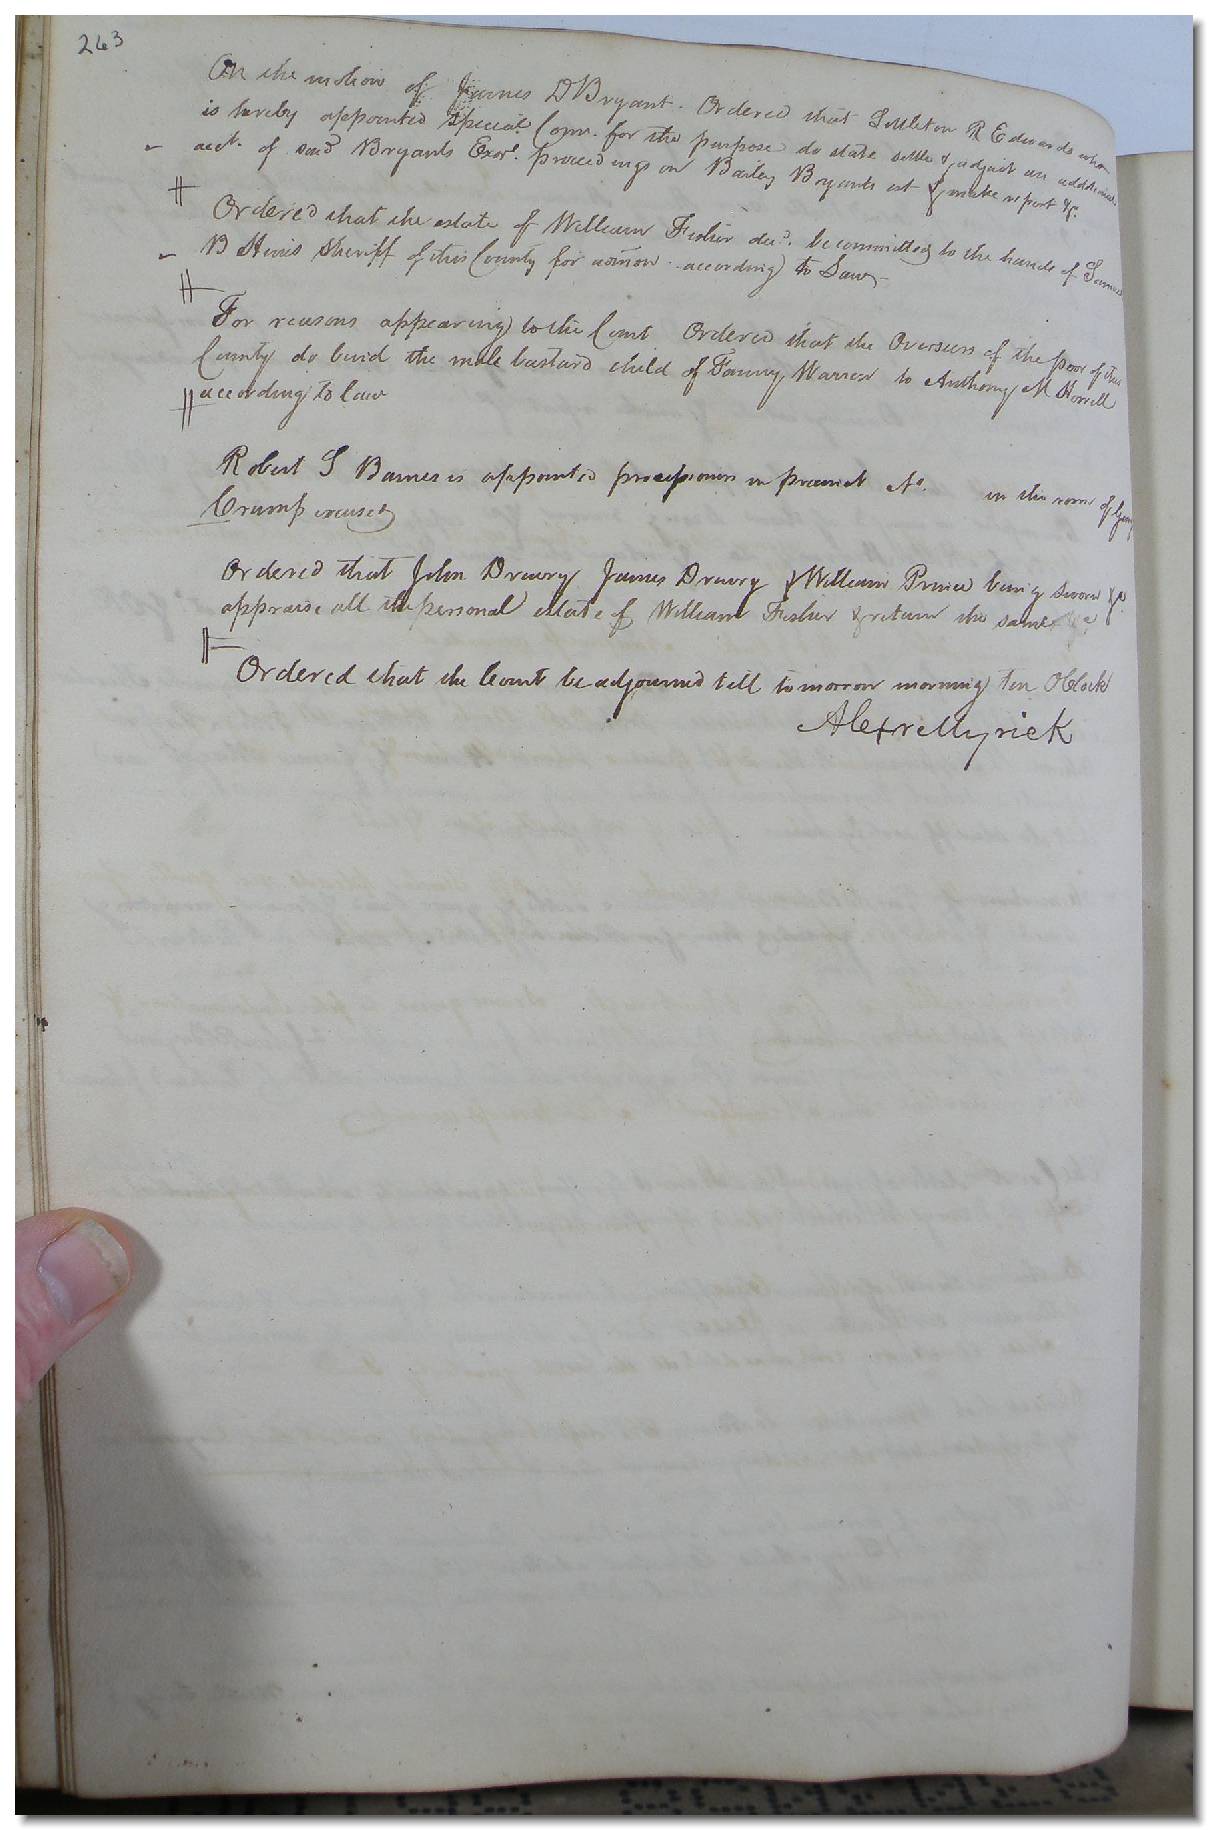 263
On the motion of James D Bryant. Ordered that Littleton R Edwards who
is hereby appointed Special Comr. for the purpose do state settle & adjust an additional
acct. of said Bryants Exorl. proceedings on Bailey Bryants est & make report &c.
Ordered that the estate of William Fisher decd. be committed to the hands of James
B Sheriff of this County for admon. according to Law
For reasons appearing to the Court Ordered that the Overseers of the poor of this
County do bind the male bastard child of Fanny Warren to Anthony M Howell
according to law
Robert S Barnes is appointed processioner in precinct No. in the room of
Crump excused
Ordered that John Drewry James Drewry & William Prince being sworn &c.
appraise all the personal estate of William Fisher & return the same
Ordered that the Court be adjourned till tomorrow morning Ten OClock
Alexr Myrick